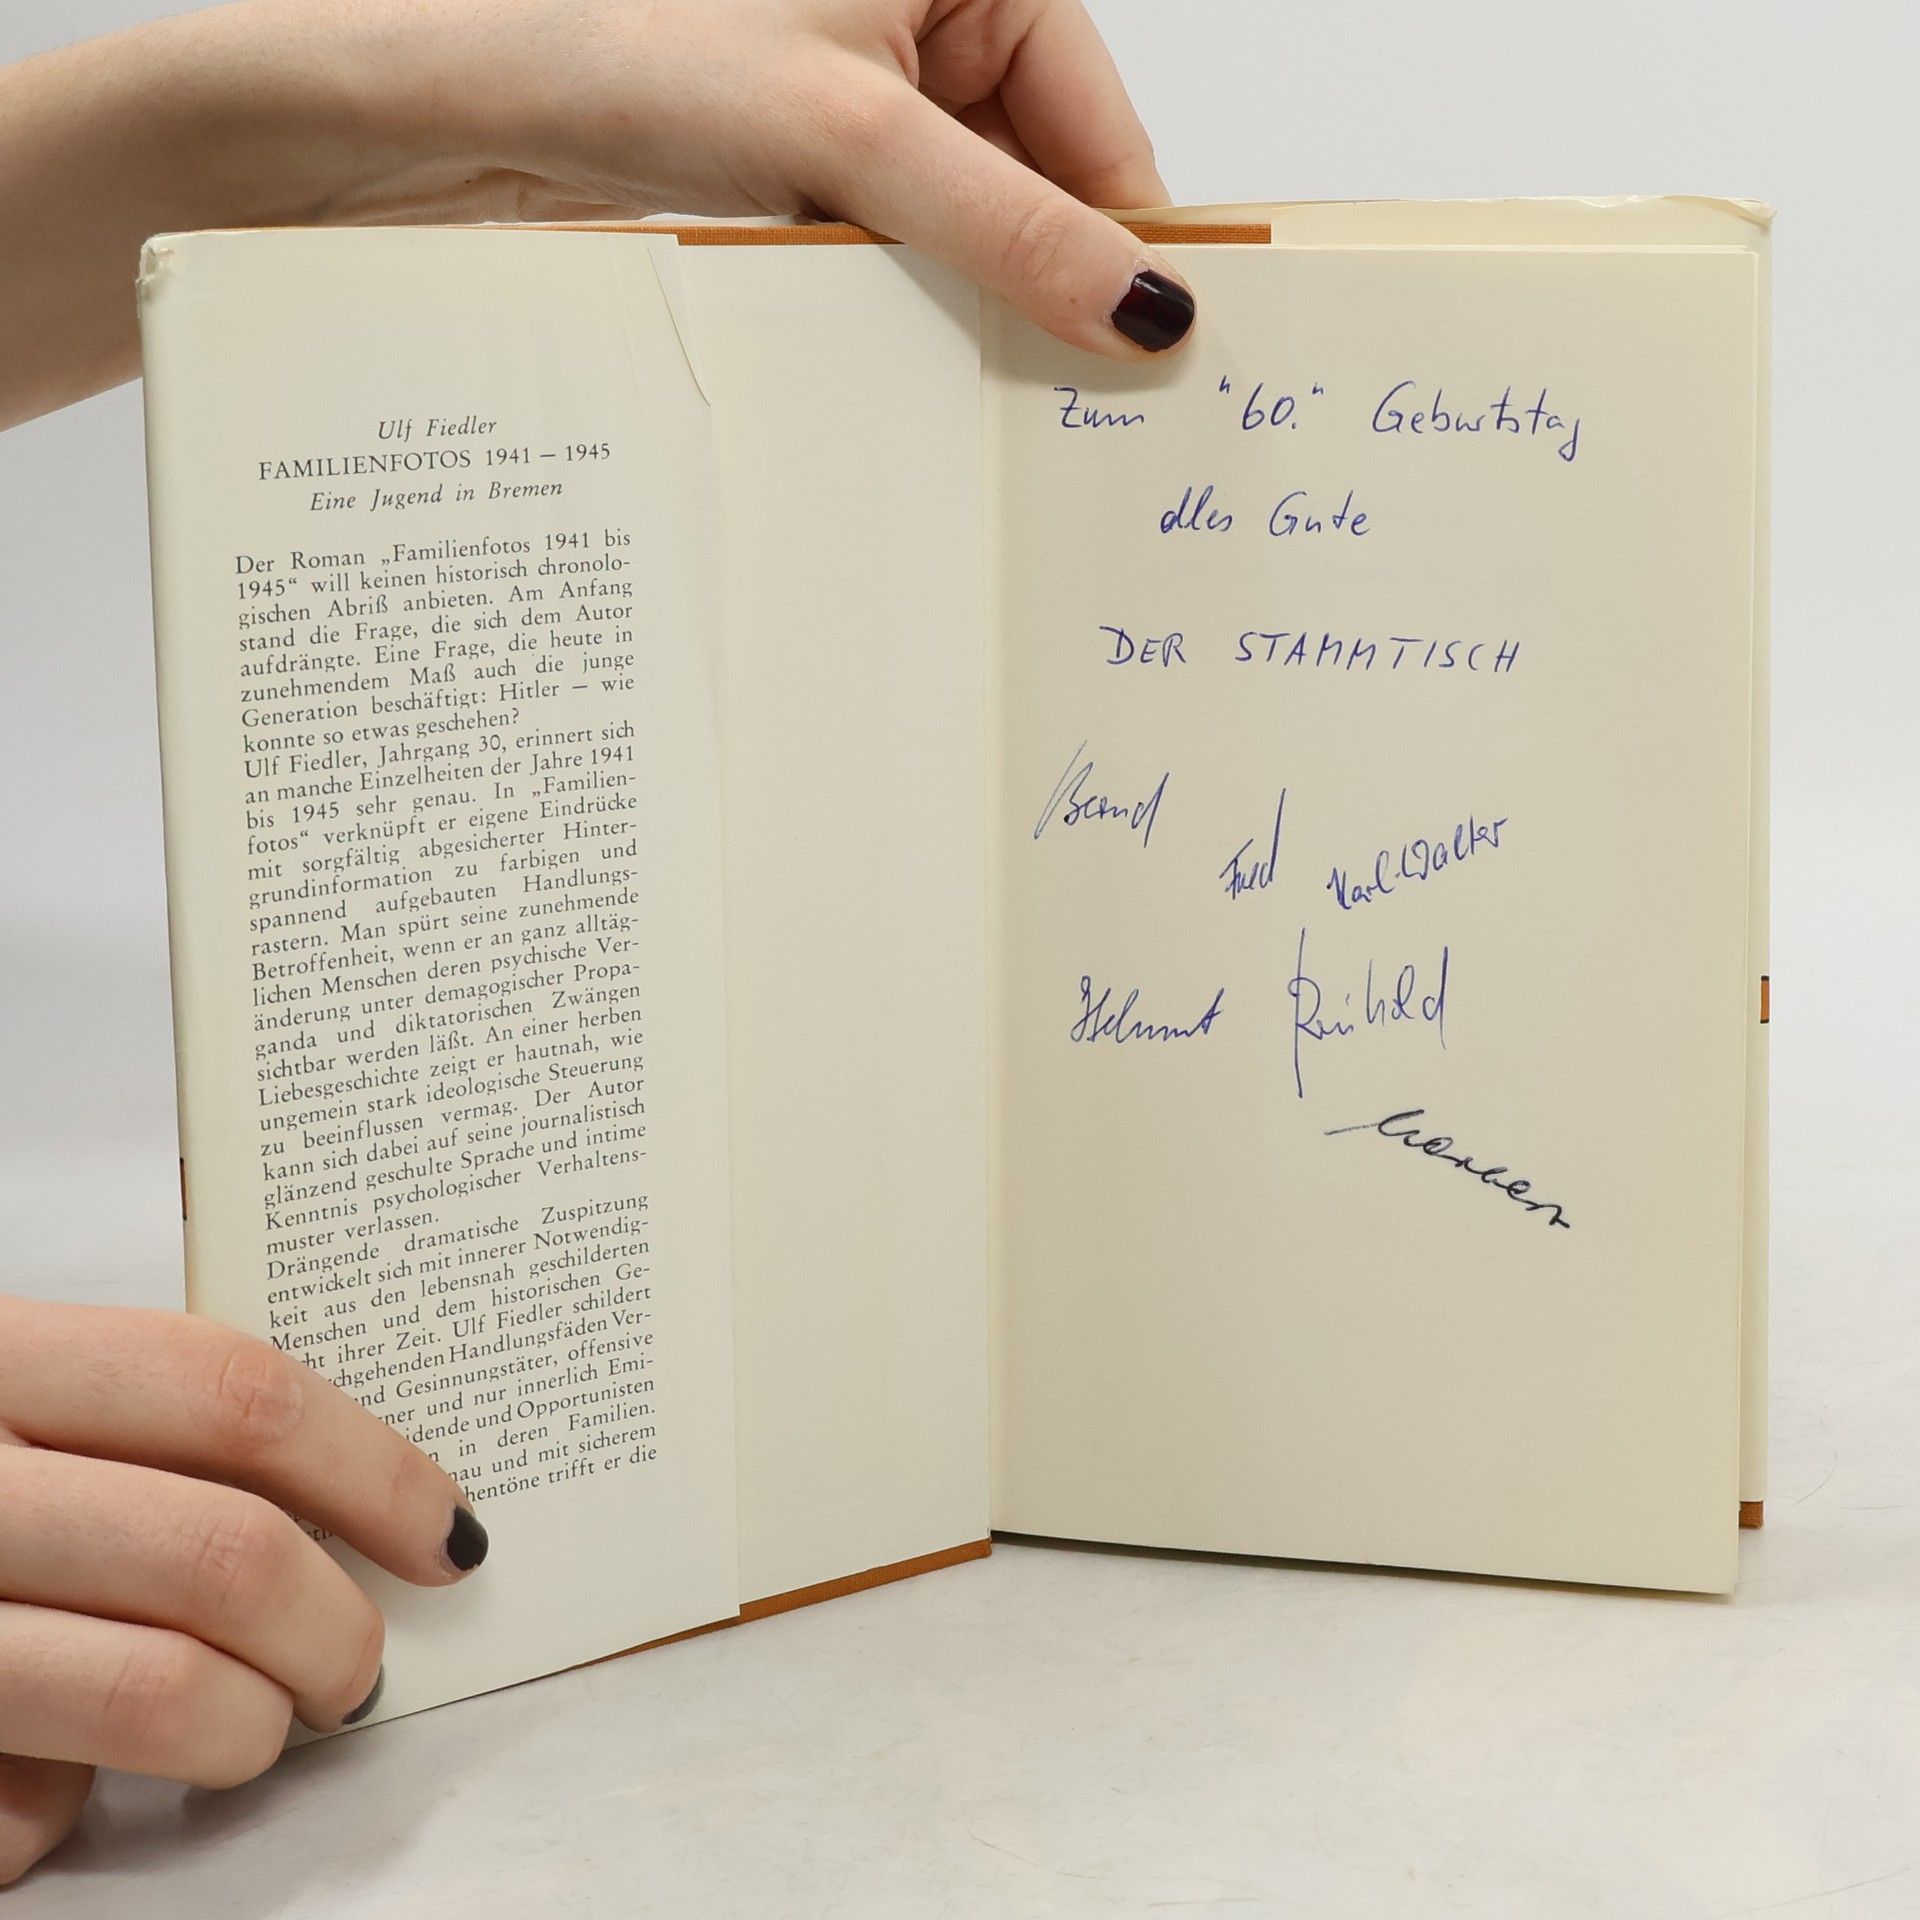 Ulf Fiedler
FAMILIENFOTOS 1941 – 1945
Eine Jugend in Bremen
Der Roman „Familienfotos 1941 bis
1945“ will keinen historisch chronolo-
gischen Abriß anbieten. Am Anfang
stand die Frage, die sich dem Autor
aufdrängte. Eine Frage, die heute in
zunehmendem Maß auch die junge
Generation beschäftigt: Hitler – wie
konnte so etwas geschehen?
Ulf Fiedler, Jahrgang 30, erinnert sich
an manche Einzelheiten der Jahre 1941
bis 1945 sehr genau. In „Familien-
fotos“ verknüpft er eigene Eindrücke
mit sorgfältig abgesicherter Hinter-
grundinformation zu farbigen und
spannend aufgebauten Handlungs-
rastern. Man spürt seine zunehmende
Betroffenheit, wenn er an ganz alltäg-
lichen Menschen deren psychische Ver-
änderung unter demagogischer Propa-
ganda und diktatorischen Zwängen
sichtbar werden läßt. An einer herben
Liebesgeschichte zeigt er hautnah, wie
ungemein stark ideologische Steuerung
zu beeinflussen vermag. Der Autor
kann sich dabei auf seine journalistisch
glänzend geschulte Sprache und intime
Kenntnis psychologischer Verhaltens-
muster verlassen.
Drängende dramatische Zuspitzung
entwickelt sich mit innerer Notwendig-
keit aus den lebensnah geschilderten
Menschen und dem historischen Ge-
ht ihrer Zeit. Ulf Fiedler schildert
chgehenden Handlungsfäden Ver-
nd Gesinnungstäter, offensive
ner und nur innerlich Emi-
idende und Opportunisten
n in deren Familien.
nau und mit sicherem
hentöne trifft er die
Zum "60." Geburtstag
alles Gute
DER STAMMTISCH
Bernd
Fred Karl-Walter
Helmut Reinhold